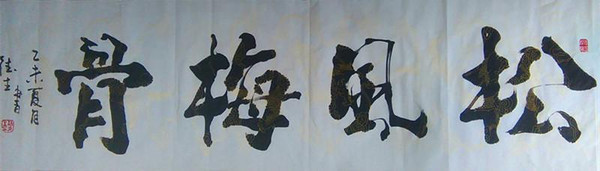 松風梅骨
乙未夏月